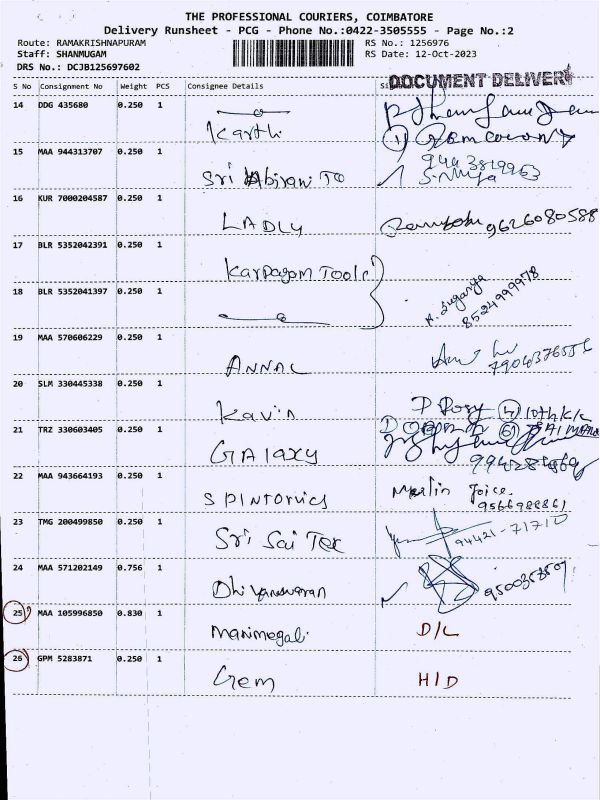 THE PROFESSIONAL COURIERS, COIMBATORE
Delivery Runsheet - PCG - Phone No.:0422-3505555 - Page No.:2
Route: RAMAKRISHNAPURAM RS No.: 1256976
Staff: SHANMUGAM RS Date: 12-Oct-2023
DRS No.: DCJB125697602
DOCUMENT DELIVERY
S No Consignment No Weight PCS Consignee Details
14 DDG 435680 0.250 1
Karthi
15 MAA 944313707 0.250 1
Sri Abirami
16 KUR 7000204587 0.250 1
LADLY 9626080588
17 BLR 5352042391 0.250 1
Karpagam Tools
18 BLR 5352041397 0.250 1
8524999978
19 MAA 570606229 0.250 1
ANNAL
20 SLM 330445338 0.250 1
Kavin
21 TRZ 330603405 0.250 1
GALAXY
22 MAA 943664193 0.250 1
SPINTONICS Merlin Joice.
23 TMG 200499850 0.250 1
Sri Sai Tex 94421-71710
24 MAA 571202149 0.756 1
25 MAA 105996850 0.830 1
Manimegali D/L
26 GPM 5283871 0.250 1
Gem H/D